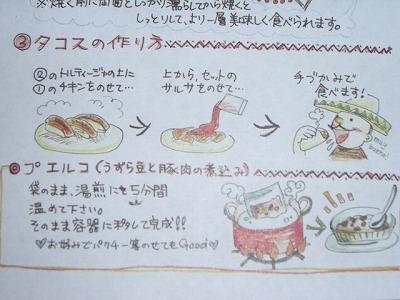 ※焼く前に両面をしっかり濡らしてから焼くと
しっとりして、より一層美味しく食べられます。
③タコスの作り方
②のトルティージャの上に
①のチキンをのせて…
上から、セットの
サルサをのせて…
手づかみで
食べます!
プエルコ(うずら豆と豚肉の煮込み)
袋のまま、湯煎にて5分間
温めて下さい。
そのまま容器に移して完成!!
♡お好みでパクチー等のせてもGood♡